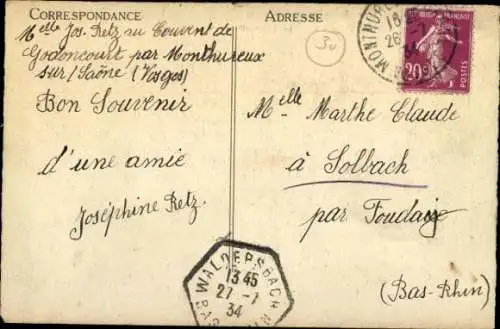 CORRESPONDANCE
Melle Jos. Retz au Couvent de
Godoncourt par Monthureux
sur/Saône/(Vosges)
Bon Souvenir
d'une amie
Joséphine Retz.
ADRESSE
30
MONTHUREUX
20c
POSTES
Melle Marthe Claude
à Solbach
par Fouday
(Bas-Rhin)
WALDERSBACH
13 45
27 - 7
34
BAS RHIN